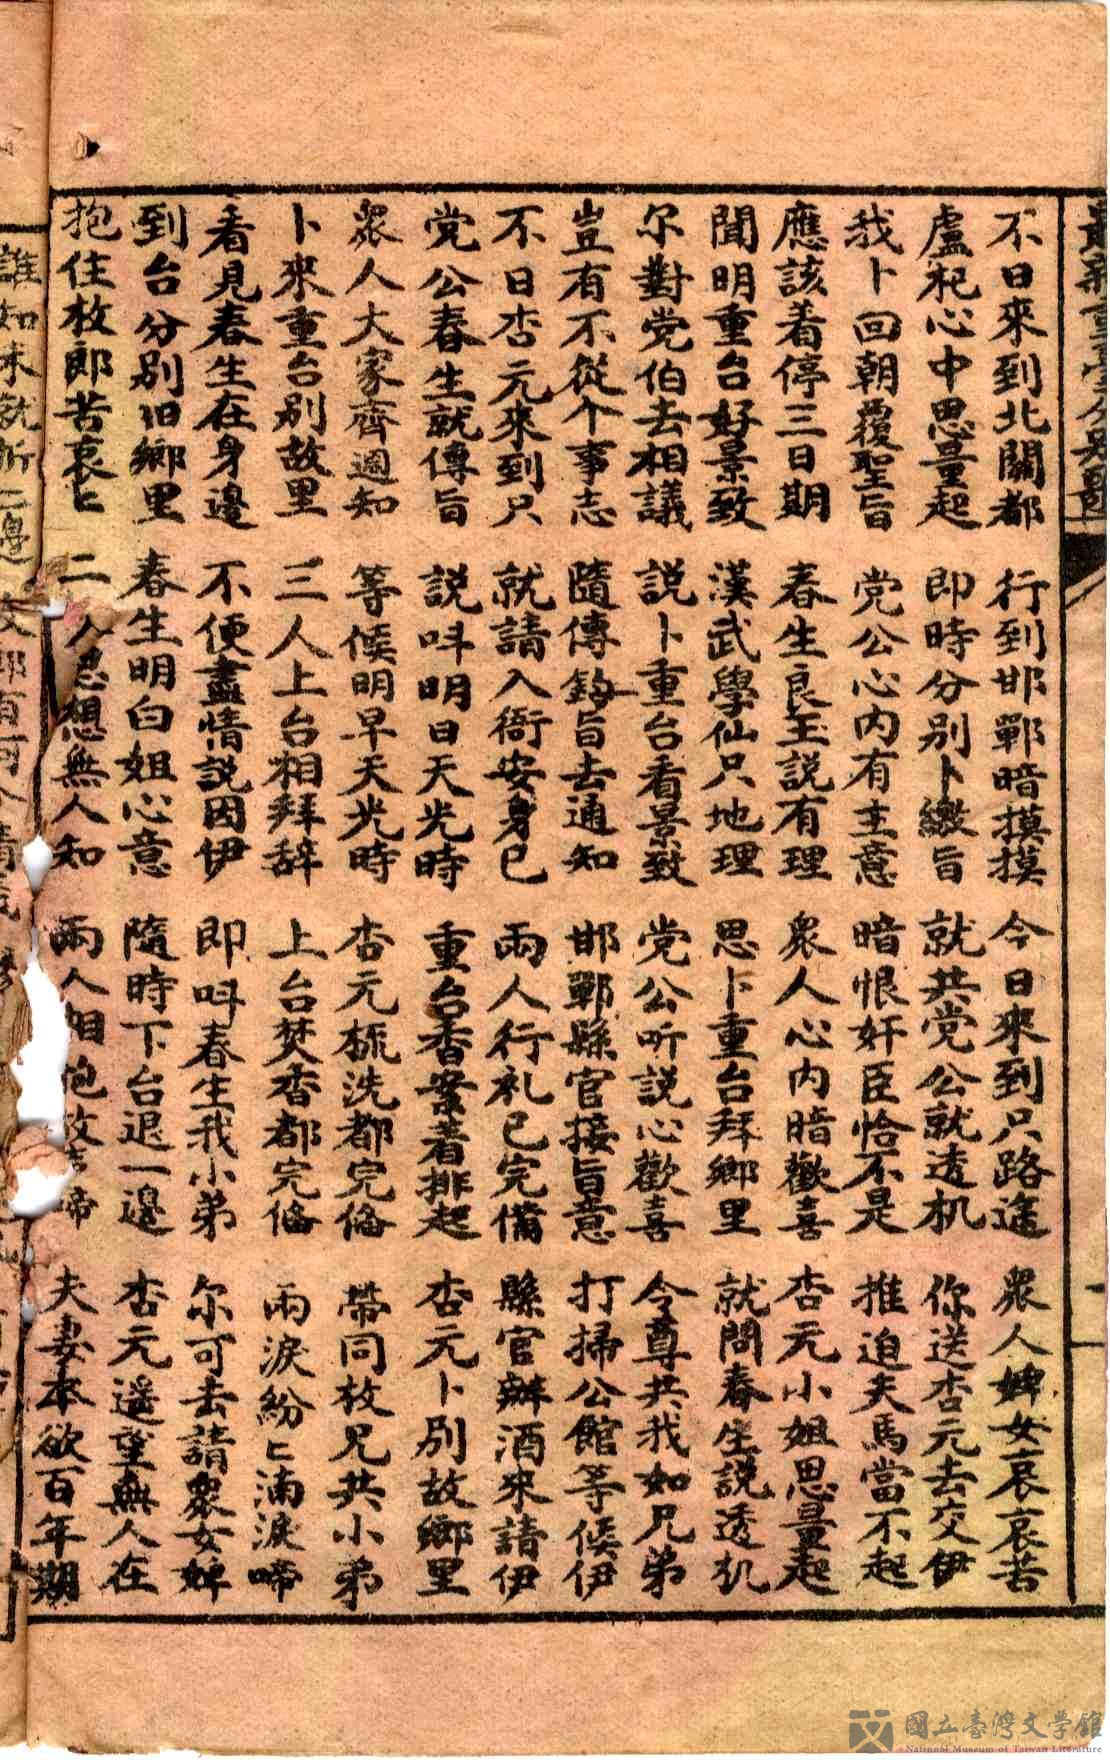 最新重台分別歌
不日來到北關都 行到邯鄲暗摸摸 今日來到只路途 眾人婢女哀哀苦
盧杞心中思量起 即時分別卜繳旨 就共党公就透机 你送杏元去交伊
我卜回朝覆聖旨 党公心內有主意 暗恨奸臣恰不是 推迫夫馬當不起
應該着停三日期 春生良玉説有理 眾人心內暗歡喜 杏元小姐思量起
聞明重台好景致 漢武學仙只地理 思卜重台拜鄉里 就問春生説透机
尔對党伯去相議 説卜重台看景致 党公听説心歡喜 令尊共我如兄弟
豈有不從个事志 隨傳鈞旨去通知 邯鄲縣官接旨意 打掃公館等候伊
不日杏元來到只 就請入衙安身已 兩人行礼已完備 縣官辦酒來請伊
党公春生就傳旨 説呌明日天光時 重台香案着排起 杏元卜別故鄉里
眾人大家齊週知 等候明早天光時 杏元梳洗都完偹 帶同枚兄共小弟
卜來重台別故里 三人上台相拜辞 上台焚香都完偹 兩淚紛匕滴淚啼
看見春生在身邊 不便盡情說因伊 即呌春生我小弟 尔可去請眾女婢
到台分別旧鄉里 春生明白姐心意 隨時下台退一邊 杏元遥望無人在
抱住枚郎苦哀匕 二人思想無人知 兩人相抱放声啼 夫妻本欲百年期
一
國立臺灣文學館
National Museum of Taiwan Literature